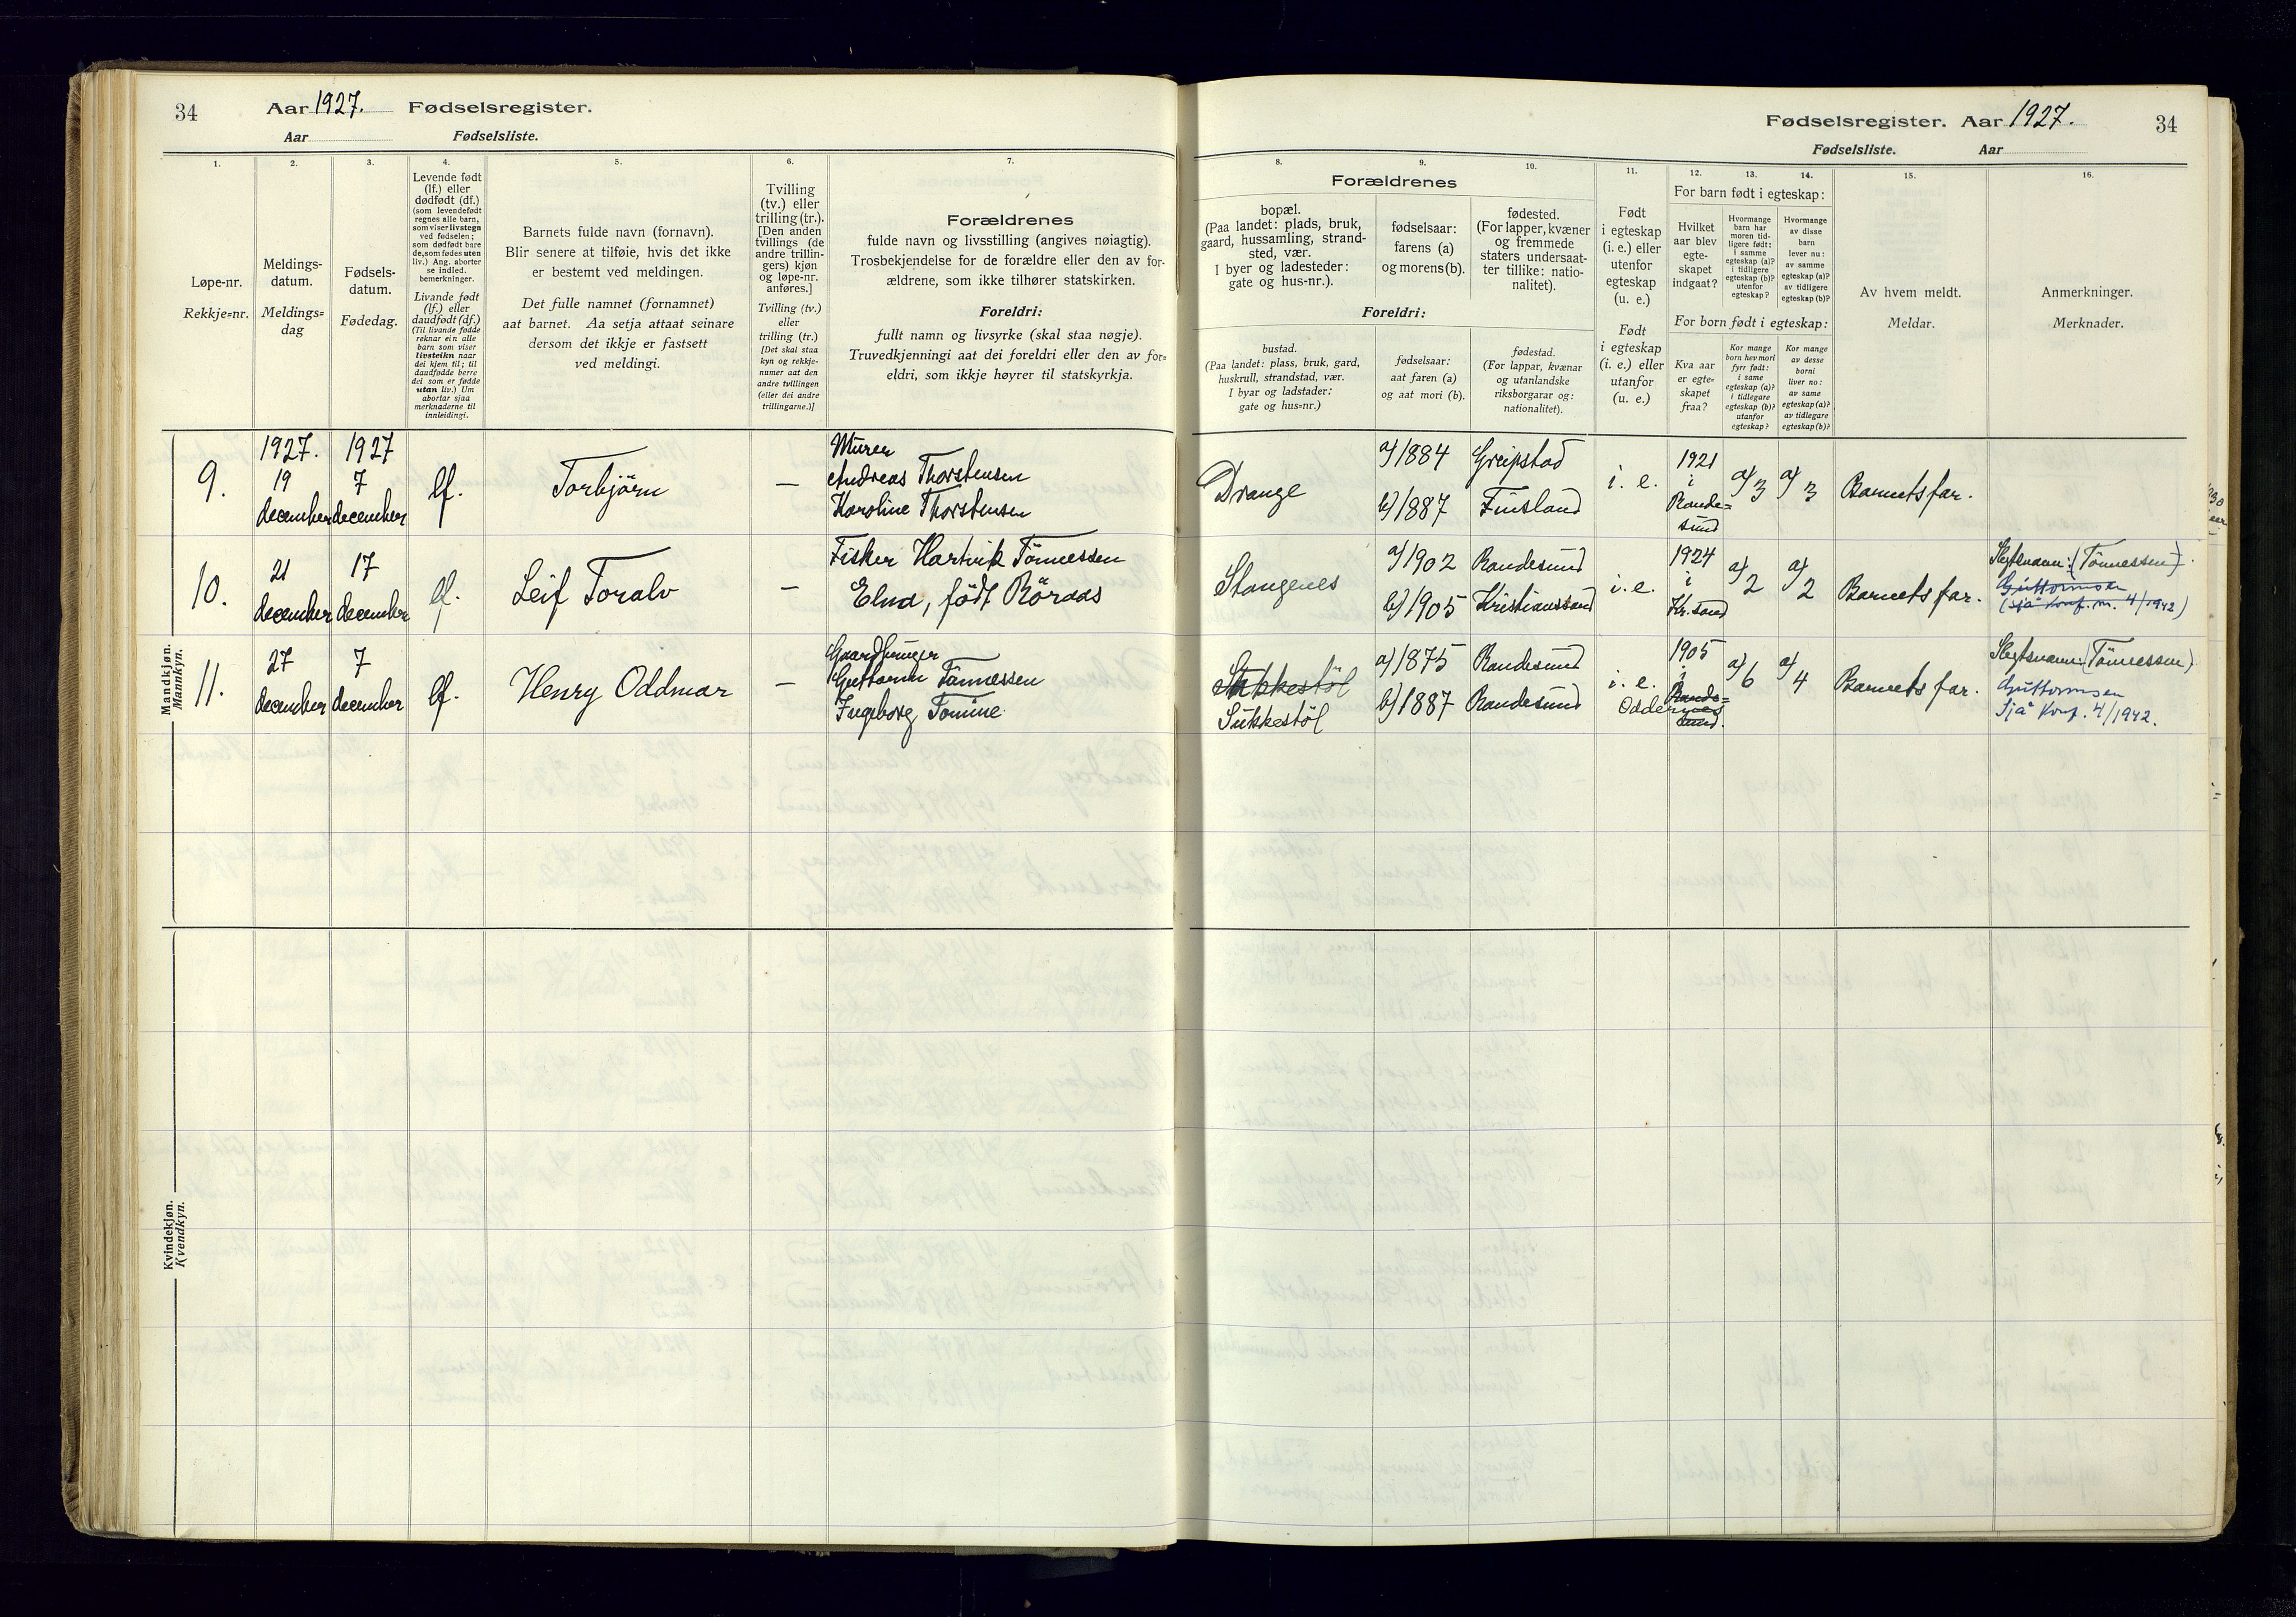 34
Aar 1927. Fødselsregister.
Aar Fødselsliste.
1.
Løpe-nr.
Rekkje=nr.
2.
Meldings-
datum.
Meldings=
dag
3.
Fødsels-
datum.
Fødedag.
4.
Levende født
(lf.) eller
dødfødt (df.)
(som levendefødt
regnes alle barn,
som viser livstegn
ved fødselen;
som dødfødt bare
de, som fødes uten
liv.) Ang. aborter
se indled.
bemerkninger.
Livande født
(lf.) eller
daudfødt (df.)
(Til livande fødde
reknar ein alle
barn som viser
livsteikn naar
dei kjem til; til
daudfødde berre
dei som er fødde
utan liv.) Um
abortar sjaa
merknaderne til
innleidingi.
5.
Barnets fulde navn (fornavn).
Blir senere at tilføie, hvis det ikke
er bestemt ved meldingen.
Det fulle namnet (fornamnet)
aat barnet. Aa setja attaat seinare
dersom det ikkje er fastsett
ved meldingi.
6.
Tvilling
(tv.) eller
trilling (tr.).
[Den anden
tvillings (de
andre trillin-
gers) kjøn
og løpe-nr.
anføres.]
Tvilling (tv.)
eller
trilling (tr.)
[Det skal staa
kyn og rekkje-
numer aat den
andre tvillingen
(eller dei andre
trillingarne.)]
7.
Forældrenes
fulde navn og livsstilling (angives nøiagtig).
Trosbekjendelse for de forældre eller den av for-
ældrene, som ikke tilhører statskirken.
Foreldri:
fullt namn og livsyrke (skal staa nøgje).
Truvedkjenningi aat dei foreldri eller den av for=
eldri, som ikkje høyrer til statskyrkja.
Mandkjøn.
Mannkyn.
9.
1927.
19
december
1927
7
december
lf.
Torbjörn
—
Murer
Andreas Thorstensen
Karoline Thorstensen
10.
21
december
17
december
lf.
Leif Toralv
—
Fisker Hartvik Tönnessen
Elna, född Röraas
11.
27
december
7
december
lf.
Henry Oddmar
—
Gaardbruger
Guttorm Tönnessen
Ingeborg Tomine
Kvindekjøn.
Kvendkyn.
Fødselsregister. Aar 1927.
34
Fødselsliste. Aar
8.
Forældrenes
bopæl.
(Paa landet: plads, bruk,
gaard, hussamling, strand-
sted, vær.
I byer og ladesteder:
gate og hus-nr.).
Foreldri:
bustad.
(Paa landet: plass, bruk, gard,
huskrull, strandstad, vær.
I byar og ladstader:
gate og hus=nr.)
9.
fødselsaar:
farens (a)
og morens (b).
fødselsaar:
aat faren (a)
og aat mori (b).
10.
fødested.
(For lapper, kvæner
og fremmede
staters undersaat-
ter tillike: natio-
nalitet).
fødestad.
(For lappar, kvænar
og utanlandske
riksborgarar og:
nationalitet).
11.
Født
i egteskap
(i. e.) eller
utenfor
egteskap
(u. e.)
Født
i egteskap
(i. e.) eller
utanfor
(u. e.)
For barn født i egteskap:
12.
Hvilket
aar blev
egte-
skapet
indgaat?
For born født i egteskap:
Kva aar
er egte=
skapet
fraa?
13.
Hvormange
barn har
moren tid-
ligere født:
i samme
egteskap (a)?
i tidligere
egteskap (b)?
utenfor
egteskap?
Kor mange
born hev mori
fyrr født:
i same
egteskap (a)?
i tidlegare
egteskap (b)?
utanfor
egteskap?
14.
Hvormange
av disse
barn
lever nu:
av samme
egteskap (a)?
av tidligere
egteskap (b)?
Kor mange
av desse
borni
liver no:
av same
egteskap (a)?
av tidlegare
egteskap (b)?
15.
Av hvem meldt.
Meldar.
16.
Anmerkninger.
Merknader.
Drange
a) 1884
b) 1887
Greipstad
Finsland
i. e.
1921
i
Rande=
sund
a) 3
a) 3
Barnets far.
Stangenes
a) 1902
b) 1905
Randesund
Kristianssand
i. e.
1924
i
Kr.sand
a) 2
a) 2
Barnets far.
Slegtsnavn: (Tönnessen).
Guttormsen
(sjå Konf. nr. 4/1942)
Stikkestöl
Sukkestöl
a) 1875
b) 1887
Randesund
Randesund
i. e.
1905
i
Rande=
sund.
Oddernes
a) 6
a) 4
Barnets far.
Slegtsnavn: (Tönnessen)
Guttormsen
Sjå Konf. 4/1942.